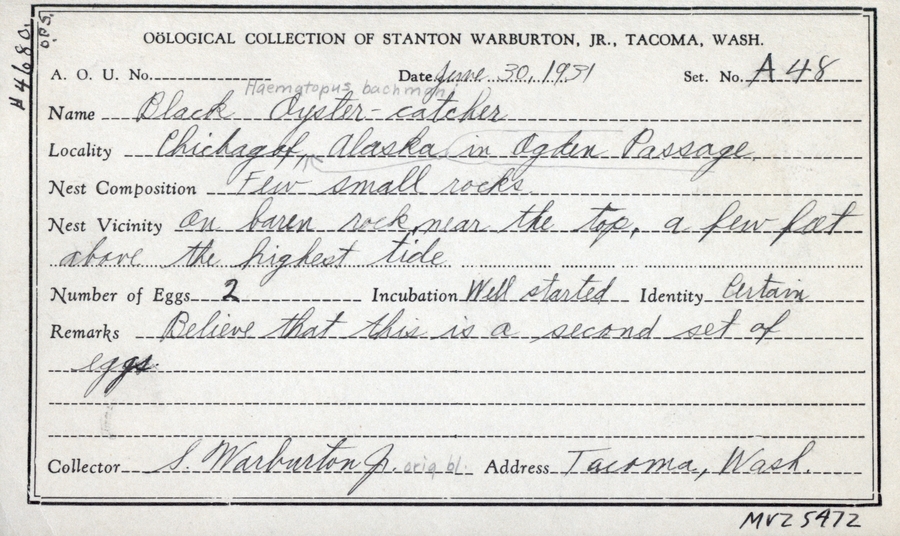 #4680.
OPS.
OÖLOGICAL COLLECTION OF STANTON WARBURTON, JR., TACOMA, WASH.
A. O. U. No. Date June 30, 1931 Set. No. A 48
Haematopus bachmani
Name Black Oyster-catcher
Locality Chichagof, Alaska in Ogden Passage
Nest Composition Few small rocks
Nest Vicinity On baren rock, near the top, a few feet
above the highest tide
Number of Eggs 2 Incubation Well started Identity Certain
Remarks Believe that this is a second set of
eggs.
Collector S. Warburton Jr. orig bl. Address Tacoma, Wash.
MVZ 5472